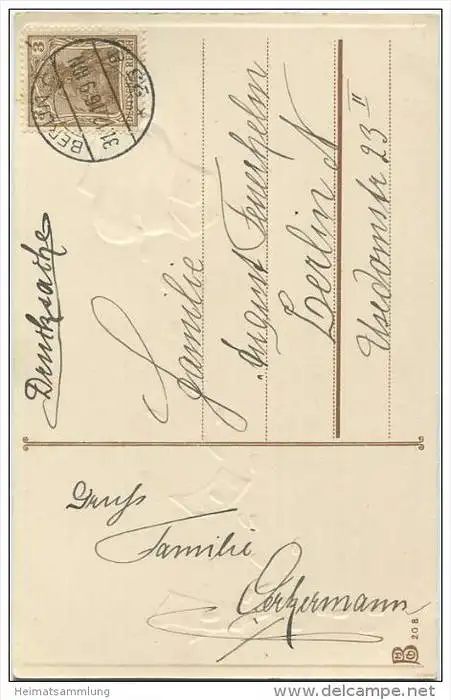 Drucksache
Familie
August Feuerhelm
Berlin N
Usedomstr 23 II
Gruß
Familie
BERLIN
31.12
9-10 N
3
208
Heimatsammlung
www.delcampe.net